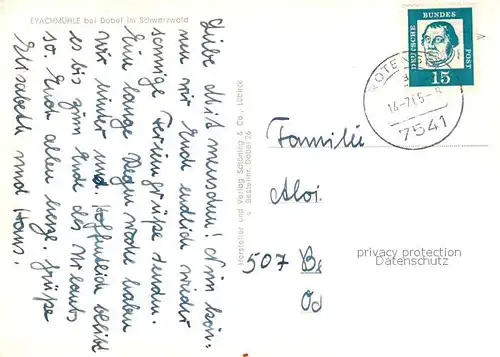 EYACHMÜHLE bei Dobel im Schwarzwald
Liebe Mitmenschen! Nun kön-
nen wir Euch endlich wieder
sonnige Feriengrüße senden.
Eine lange Regenwoche haben
wir hinter uns. Hoffentlich bleibt
es bis zum Ende des Urlaubs
so. Euch allen herzl. Grüße
Elisabeth und Hans.
Hersteller und Verlag Schöning & Co., Lübeck
Bestellnr. Dobel 26
DEUTSCHE BUNDES POST
15
14-7.65-8
7541
Familie
Aloi.
507 Be
Od
privacy protection
Datenschutz